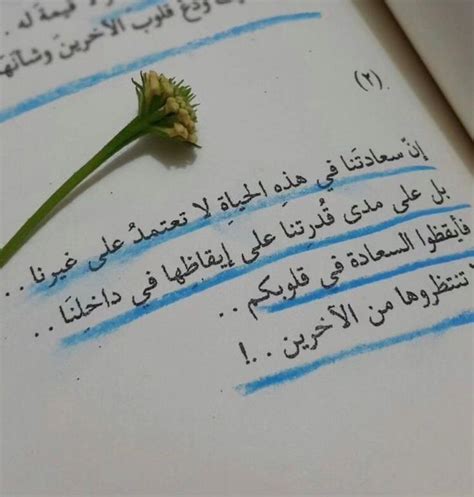 ودع قلوب الآخرين وشأنها
قيمة له .
(٢)
إنّ سعادتَنا في هذِهِ الحياةِ لا تعتمدُ على غيرنا . .
بل على مدى قُدرتِنا على إيقاظها في داخلِنَا . .
فأيقظوا السعادة في قلوبكم . .
تنتظروها من الآخرين . . !